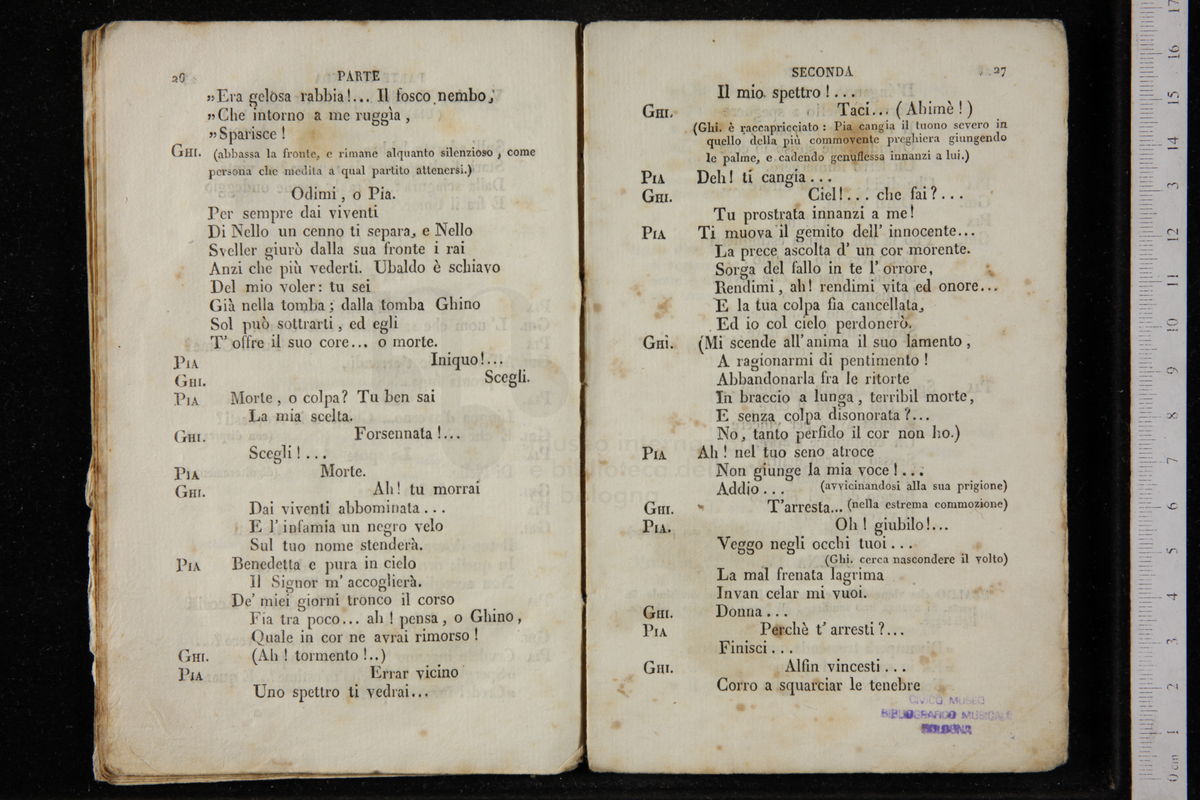 26 PARTE
»Era gelosa rabbia!... Il fosco nembo,
»Che intorno a me ruggìa ,
»Sparisce !
GHI. (abbassa la fronte, e rimane alquanto silenzioso , come
persona che medita a qual partito attenersi.)
Odimi , o Pia.
Per sempre dai viventi
Di Nello un cenno ti separa, e Nello
Sveller giurò dalla sua fronte i rai
Anzi che più vederti. Ubaldo è schiavo
Del mio voler: tu sei
Già nella tomba ; dalla tomba Ghino
Sol può sottrarti , ed egli
T' offre il suo core... o morte.
PIA Iniquo!...
GHI. Scegli.
PIA Morte , o colpa? Tu ben sai
La mia scelta.
GHI. Forsennata !...
Scegli ! ...
PIA Morte.
GHI. Ah! tu morrai
Dai viventi abbominata ...
E l' infamia un negro velo
Sul tuo nome stenderà.
PIA Benedetta e pura in cielo
Il Signor m' accoglierà.
De' miei giorni tronco il corso
Fia tra poco... ah ! pensa , o Ghino ,
Quale in cor ne avrai rimorso !
GHI. (Ah ! tormento !..)
PIA Errar vicino
Uno spettro ti vedrai...
SECONDA 27
Il mio spettro ! ...
GHI. Taci... ( Ahimè ! )
(Ghi. è raccapricciato : Pia cangia il tuono severo in
quello della più commovente preghiera giungendo
le palme, e cadendo genuflessa innanzi a lui.)
PIA Deh! ti cangia ...
GHI. Ciel! ... che fai ? ...
Tu prostrata innanzi a me!
PIA Ti muova il gemito dell' innocente...
La prece ascolta d' un cor morente.
Sorga del fallo in te l' orrore,
Rendimi , ah! rendimi vita ed onore...
E la tua colpa fia cancellata,
Ed io col cielo perdonerò.
GHI. (Mi scende all' anima il suo lamento ,
A ragionarmi di pentimento !
Abbandonarla fra le ritorte
In braccio a lunga , terribil morte,
E senza colpa disonorata ?...
No , tanto perfido il cor non ho.)
PIA Ah ! nel tuo seno atroce
Non giunge la mia voce ! ...
Addio ... (avvicinandosi alla sua prigione)
GHI. T'arresta... (nella estrema commozione)
PIA. Oh ! giubilo!...
Veggo negli occhi tuoi ...
(Ghi. cerca nascondere il volto)
La mal frenata lagrima
Invan celar mi vuoi.
GHI. Donna ...
PIA Perchè t' arresti ?...
Finisci ...
GHI. Alfin vincesti ...
Corro a squarciar le tenebre
CIVICO MUSEO
BIBLIOGRAFICO MUSICALE
BOLOGNA
museo internazionale
e biblioteca della
di bologna
0 cm 1 2 3 4 5 6 7 8 9 10 11 12 13 14 15 16 17